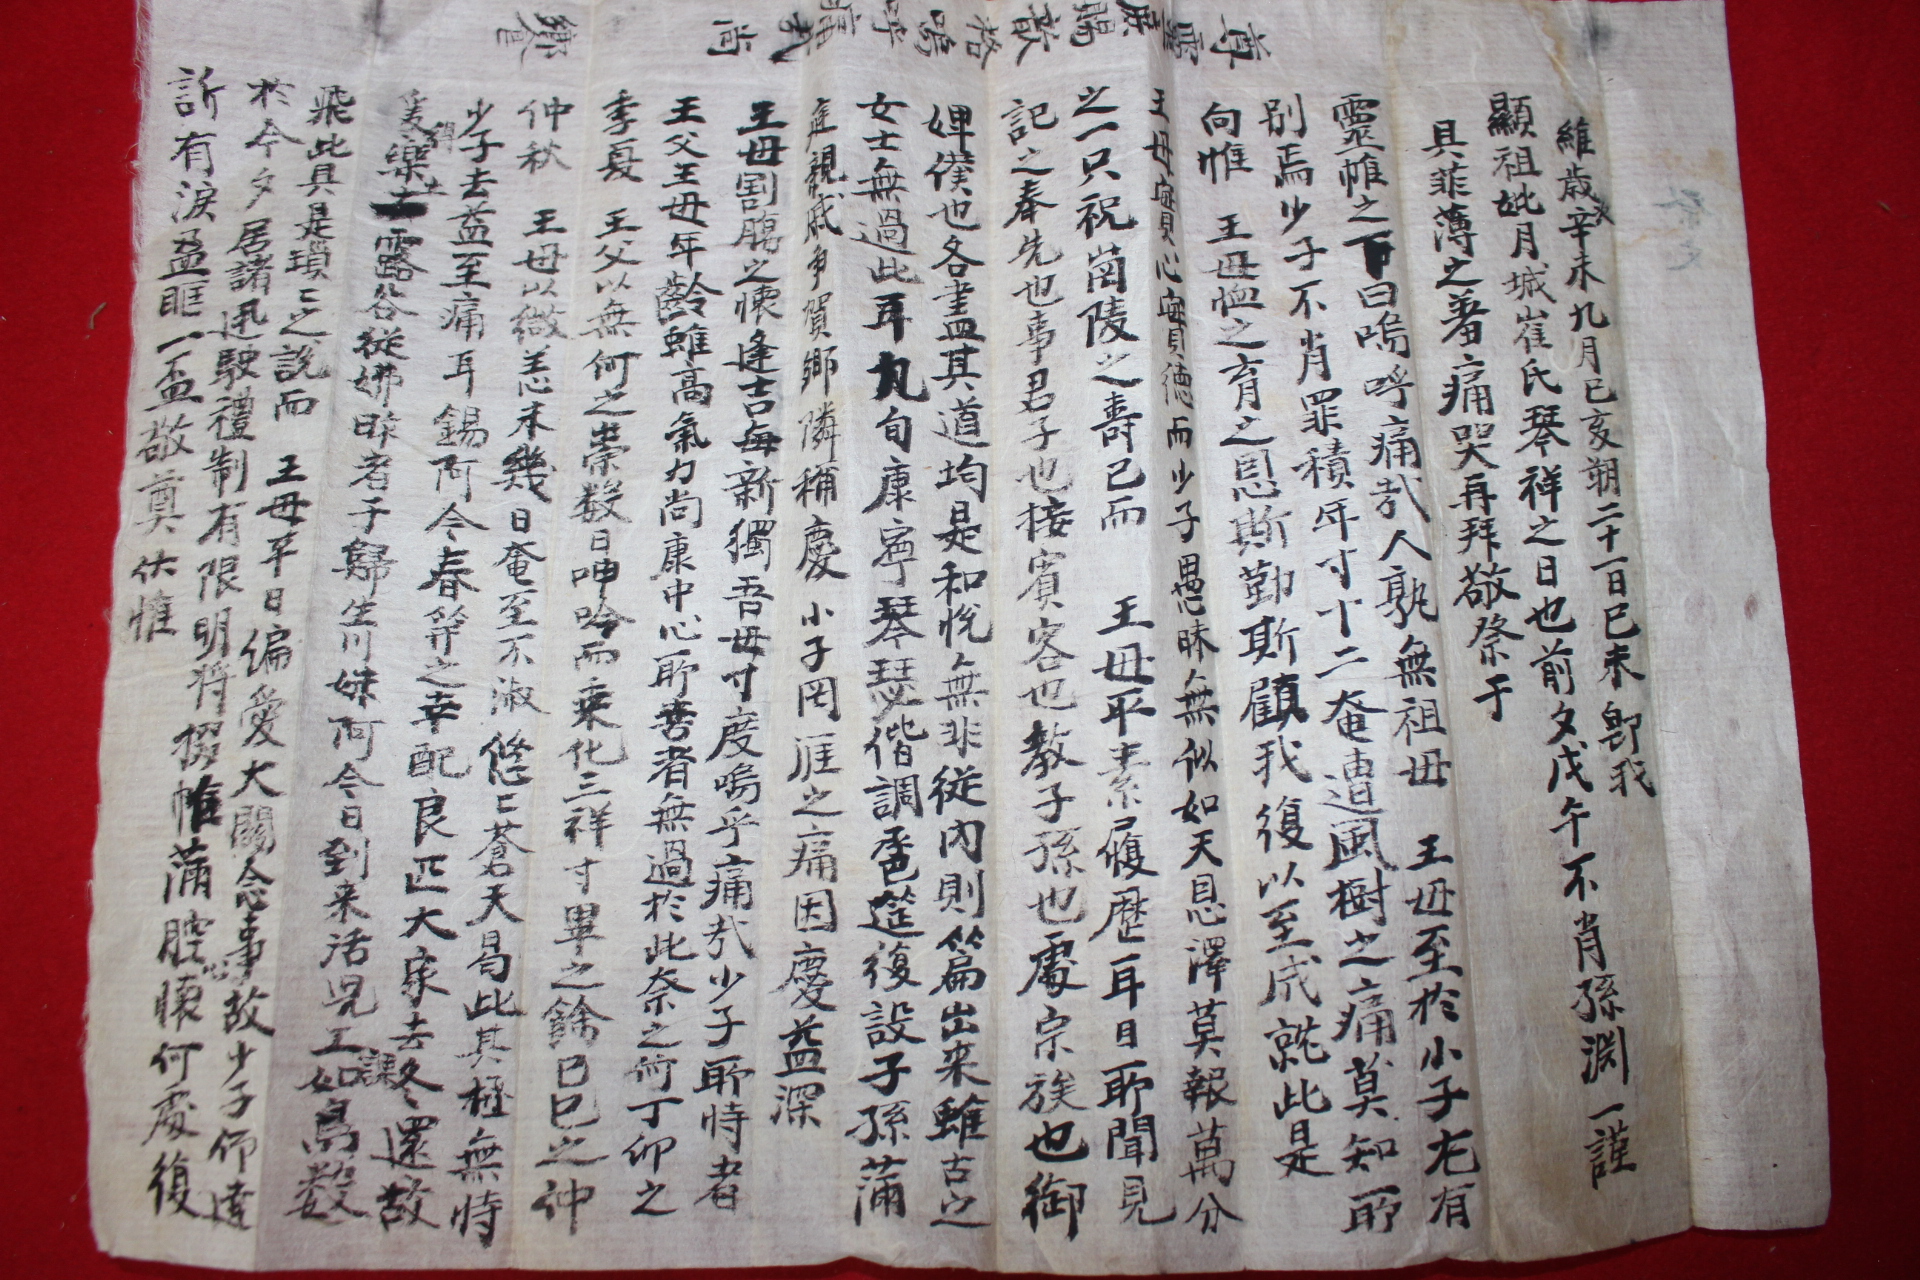 維歲次辛未九月己亥朔二十一日己未卽我
顯祖妣月城崔氏琴祥之日也前夕戊午不肖孫淵一謹
具菲薄之羞痛哭再拜敬祭于
靈帷之下曰嗚呼痛哉人孰無祖母 王母至於小子尤有
別焉少子不肖罪積年寸十二奄遭風樹之痛莫知所
向惟 王母恤之育之恩斯勤斯顧我復以至成就此是
王母實心實德而少子愚昧無似如天恩澤莫報萬分
之一只祝崗陵之壽已而 王母平素履歷耳目所聞見
記之奉先也事君子也接賓客也教子孫也處宗族也御
婢僕也各盡其道均是和悅無非從內則篇出來雖古之
女士無過此耳九旬康寧琴瑟偕調巹筵復設子孫滿
庭親戚爭賀鄉隣稱慶小子罔涯之痛因慶益深
王母割腸之懷逢吉每新獨吾母寸度嗚乎痛哉少子所恃者
王父王母年齡雖高氣力尚康中心所喜者無過於此奈之何丁卯之
季夏 王父以無何之祟數日呻吟而乘化三祥寸畢之餘己巳之仲
仲秋 王母以微恙未幾日奄至不淑悠〻蒼天曷此其極無恃
少子去益至痛耳錫阿今春筓之幸配良匹大家去冬還故
樂土露谷從娣昨者子歸生川妹阿今日到來活児工課如鳥數
飛此具是瑣〻之說而 王母平日偏愛大關念事故少子仰達
於今夕居諸迅駛禮制有限明將撤帷滿腔懷何處復
訴有淚盈眶一盃敬奠伏惟
尊靈庶賜歆格嗚呼痛哉尚
饗
祭文